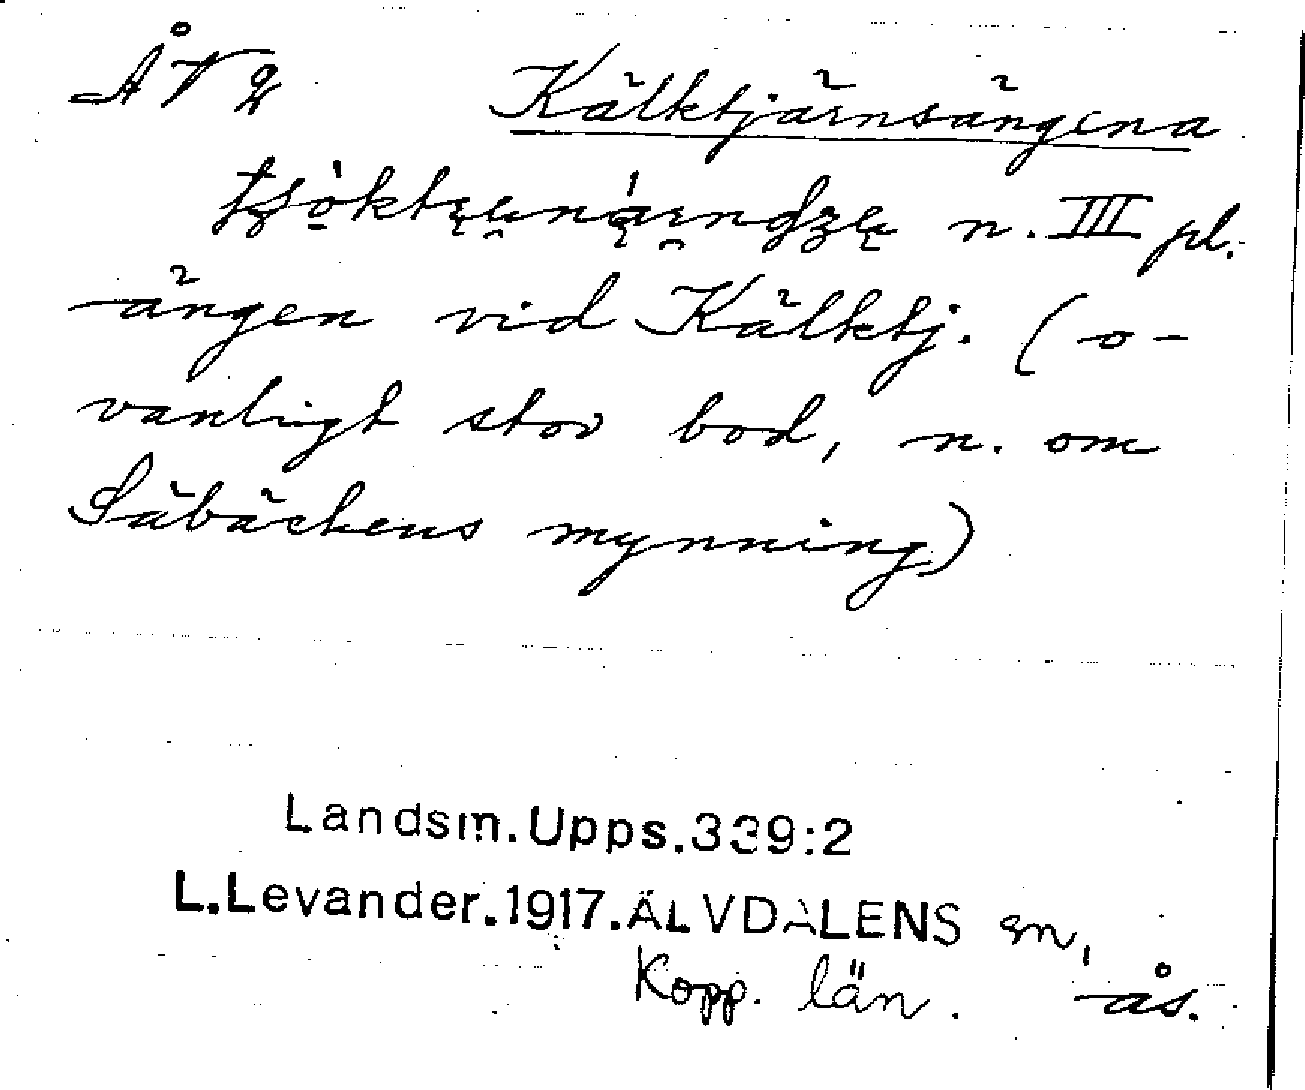 ÅV 2 Kälktjärnsängena
n. III pl.
ängen vid Kälktj. (o-
vanligt stor bod, n. om
Säbäckens mynning)
Landsm.Upps.339:2
L.Levander.1917.ÄLVDALENS sn,
Kopp. län. ås.